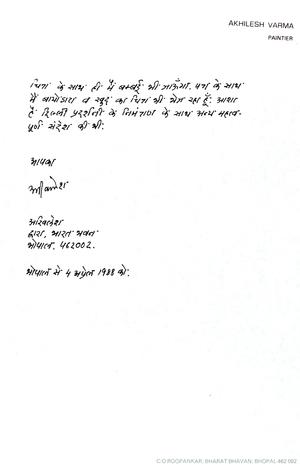 AKHILESH VARMA
PAINTER
चित्र के साथ ही मैं बम्बई भी जाऊँगा. पत्र के साथ
मैं बायोडाटा व स्वयं का चित्र भी भेज रहा हूँ. आशा
है दिल्ली प्रदर्शनी के निमंत्रण के साथ अन्य महत्व-
पूर्ण संदेश की भी.
आपका
अखिलेश
अखिलेश
द्वारा, भारत भवन
भोपाल. 462002.
भोपाल से 4 अप्रेल 1988 को.
C/O ROOPANKAR, BHARAT BHAVAN, BHOPAL-462 002